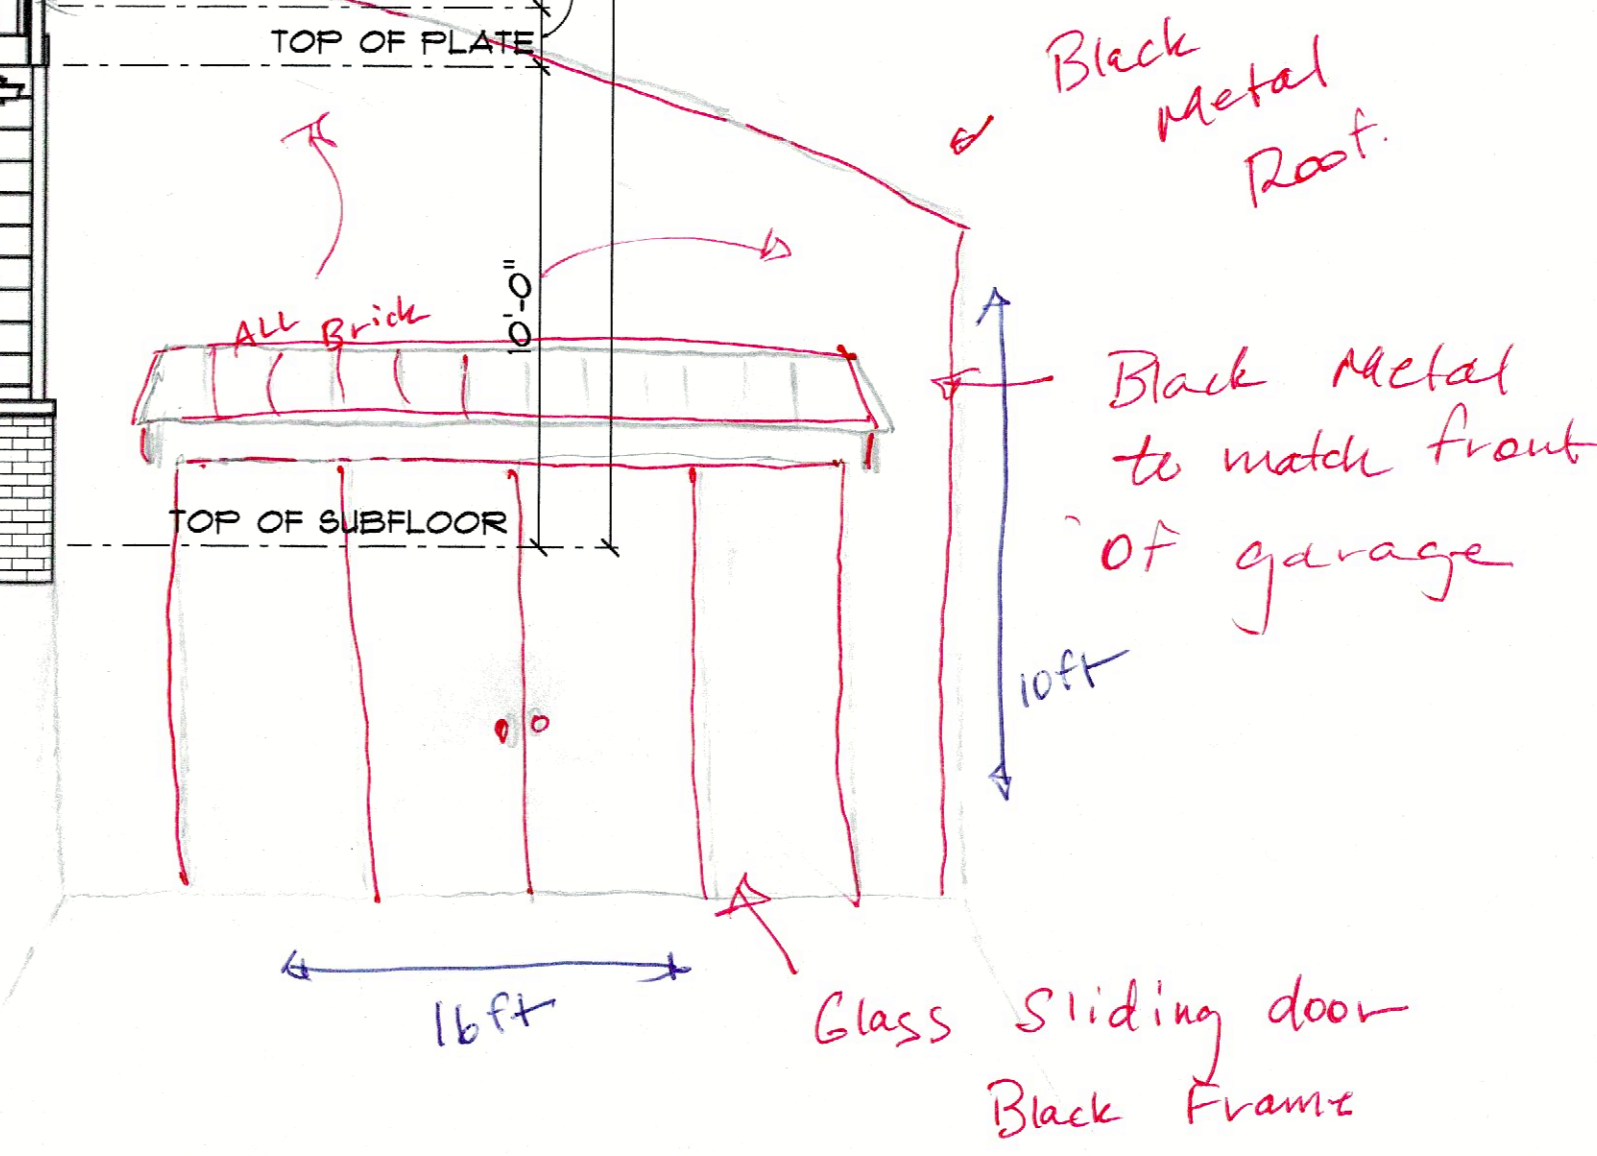 TOP OF PLATE
Black
Metal
Roof.
10'-0"
ALL Brick
Black Metal
to match front
of garage
TOP OF SUBFLOOR
10ft
16ft
Glass Sliding door
Black Frame